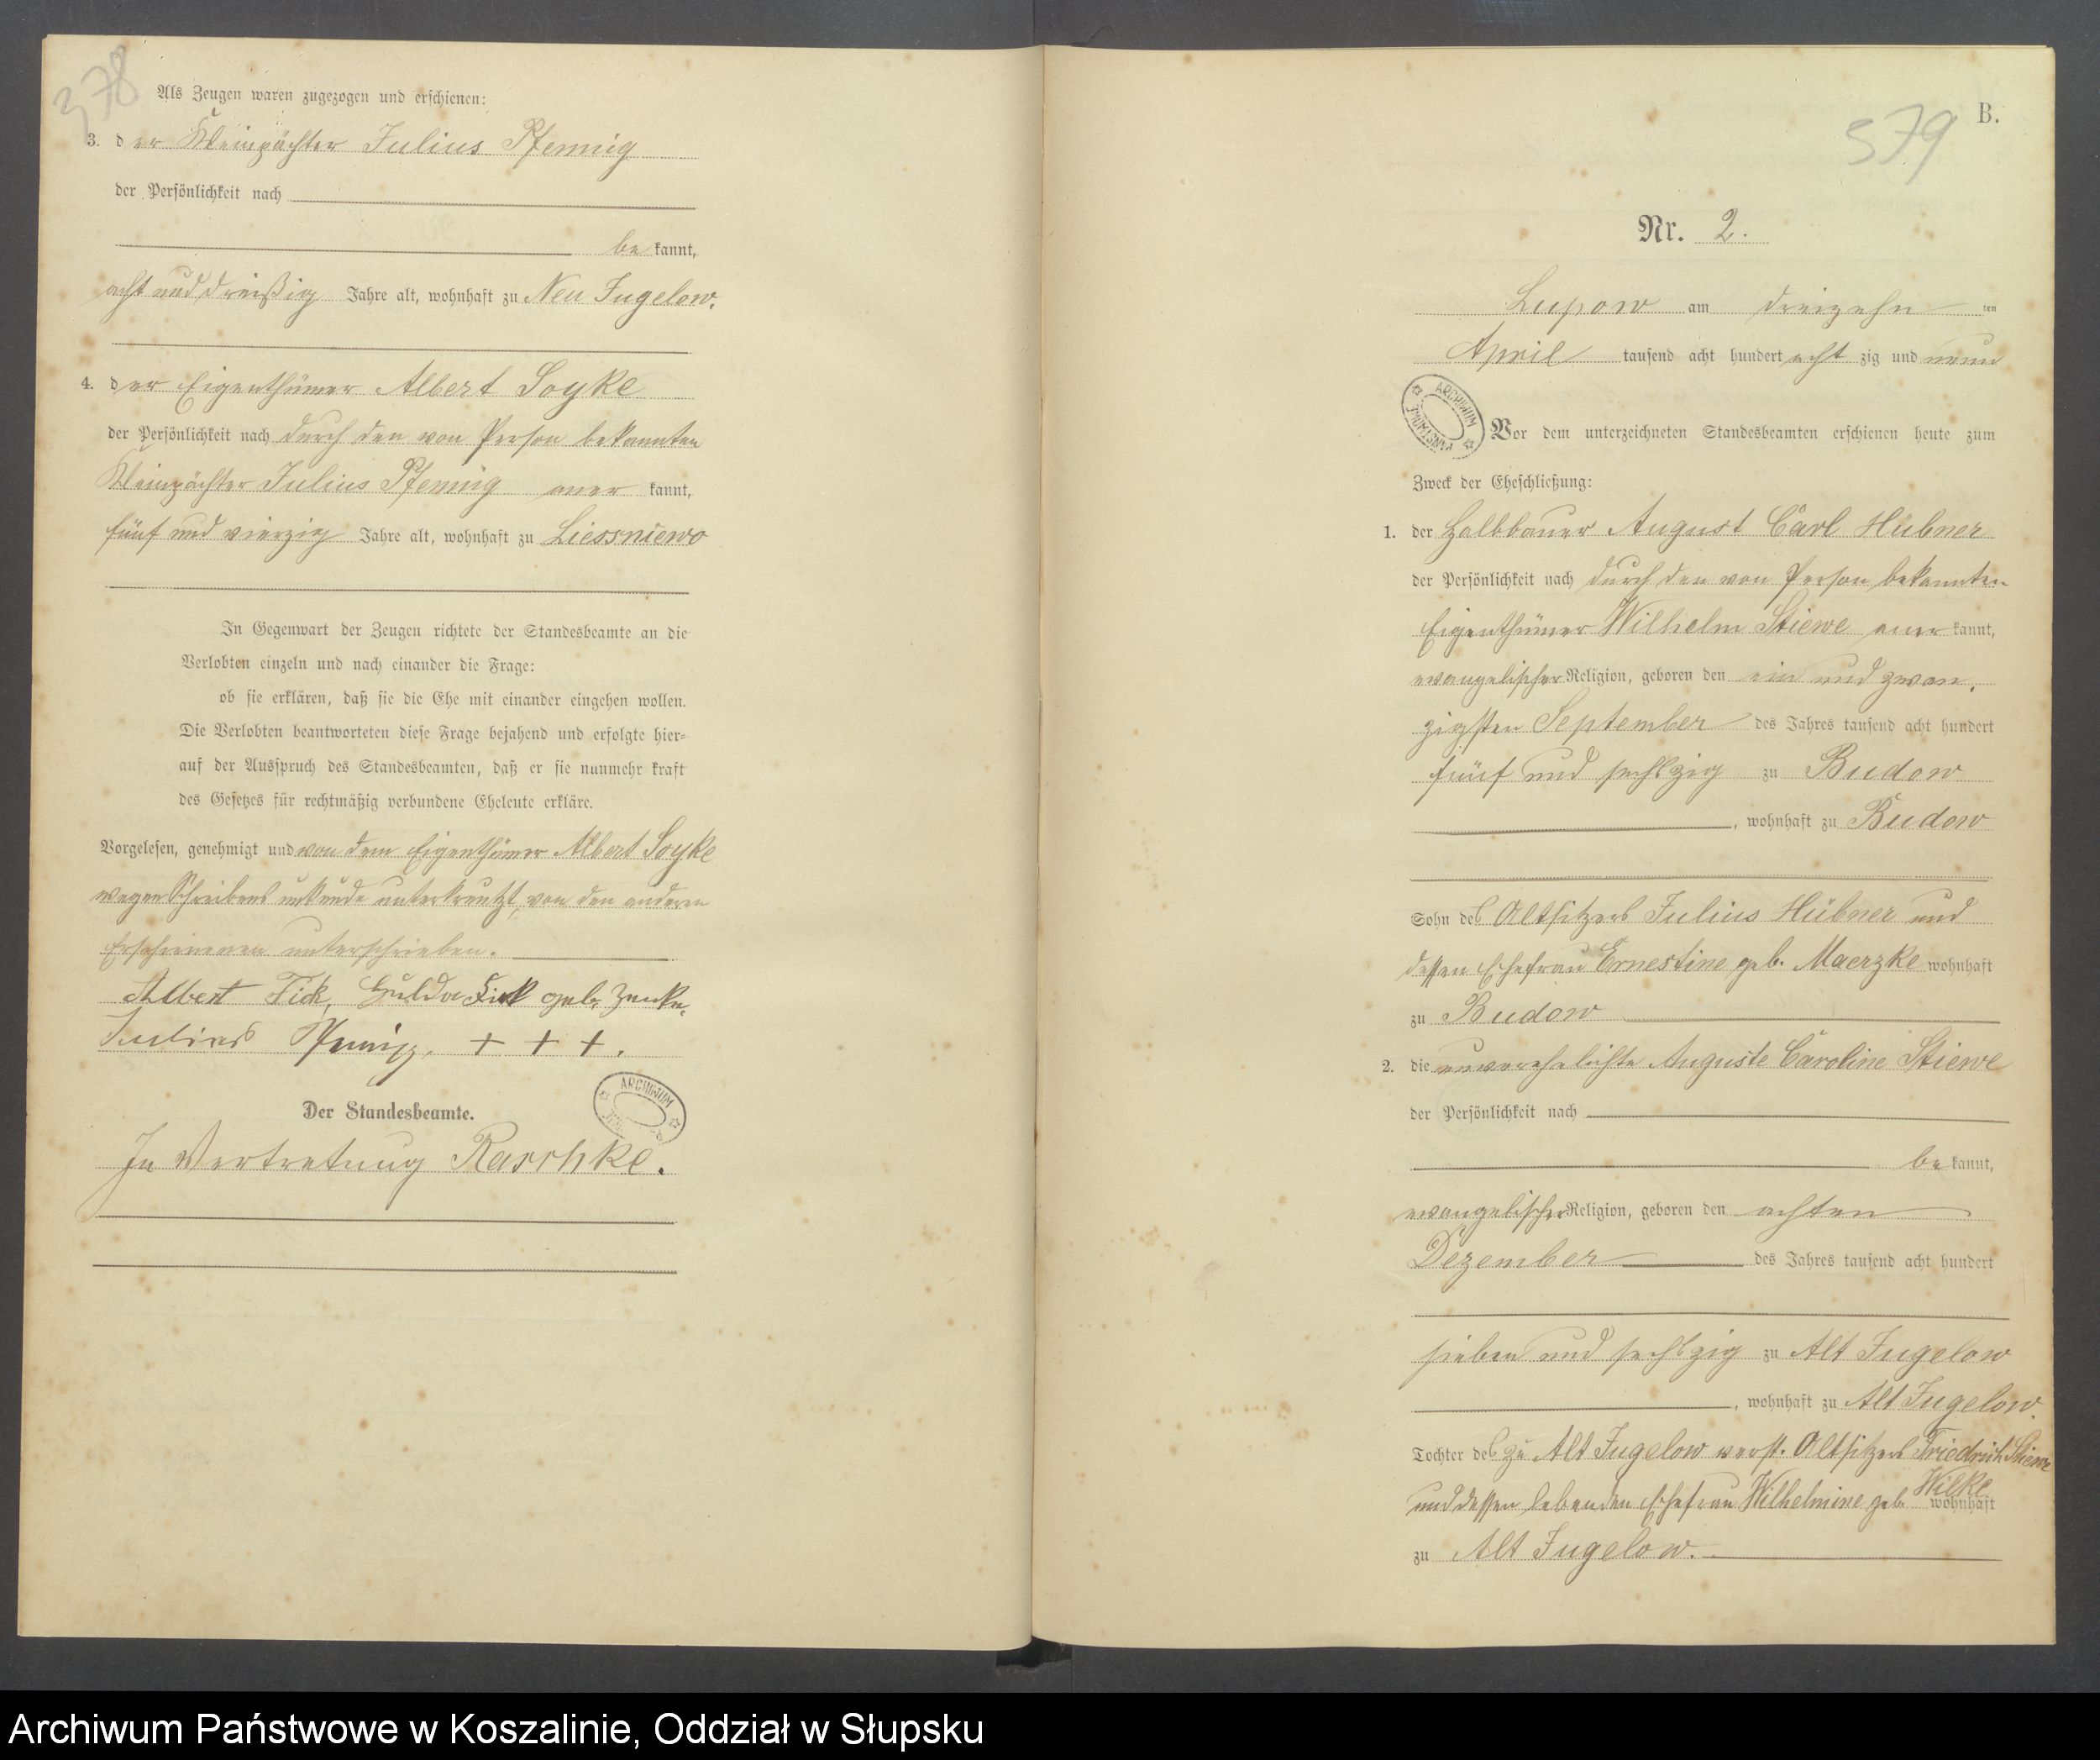 378
Als Zeugen waren zugezogen und erschienen:
3. der Kleinpächter Julius Pfennig
der Persönlichkeit nach
be kannt,
acht und dreißig Jahre alt, wohnhaft zu Neu Jugelow.
4. der Eigenthümer Albert Soyke
der Persönlichkeit nach durch den von Person bekannten
Kleinpächter Julius Pfennig aner kannt,
fünf und vierzig Jahre alt, wohnhaft zu Liessniewo
In Gegenwart der Zeugen richtete der Standesbeamte an die
Verlobten einzeln und nach einander die Frage:
ob sie erklären, daß sie die Ehe mit einander eingehen wollen.
Die Verlobten beantworteten diese Frage bejahend und erfolgte hier-
auf der Ausspruch des Standesbeamten, daß er sie nunmehr kraft
des Gesetzes für rechtmäßig verbundene Eheleute erkläre.
Vorgelesen, genehmigt und von dem Eigenthümer Albert Soyke
wegen Schreibens unkunde unterkreuzt, von den anderen
Erschienenen unterschrieben.
Albert Fick, Hulda Fick geb. Zenke.
Julius Pfennig, + + +.
ARCHIWUM
Der Standesbeamte.
In Vertretung Raschke.
579
B.
Nr. 2.
Lupow am dreizehn ten
April tausend acht hundert acht zig und neun
ARCHIWUM PAŃSTWOWE
Vor dem unterzeichneten Standesbeamten erschienen heute zum
Zweck der Eheschließung:
1. der Halbbauer August Carl Hübner
der Persönlichkeit nach durch den von Person bekannten
Eigenthümer Wilhelm Stiewe aner kannt,
evangelischer Religion, geboren den ein und zwan-
zigsten September des Jahres tausend acht hundert
fünf und sechszig zu Budow
, wohnhaft zu Budow
Sohn des Altsitzers Julius Hübner und
dessen Ehefrau Ernestine geb. Maerzke wohnhaft
zu Budow
2. die unverehelichte Auguste Caroline Stiewe
der Persönlichkeit nach
be kannt,
evangelischer Religion, geboren den achten
Dezember des Jahres tausend acht hundert
sieben und sechszig zu Alt Jugelow
, wohnhaft zu Alt Jugelow.
Tochter des zu Alt Jugelow verst. Altsitzers Friedrich Stiewe
und dessen lebenden Ehefrau Wilhelmine geb. Wilke wohnhaft
zu Alt Jugelow.
Archiwum Państwowe w Koszalinie, Oddział w Słupsku